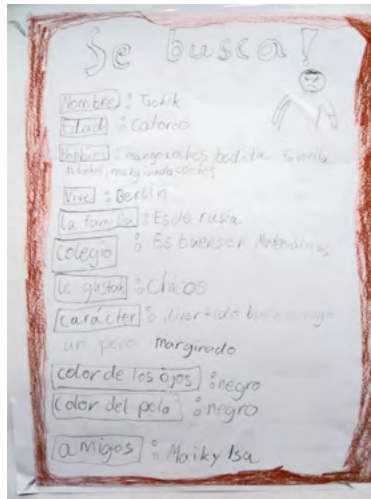 Se busca!
Nombre : Tschik
Edad : Catorce
Hobbies : coches
coches
Vive : Berlin
La familia : Es de rusia
colegio : Es bueno en
le gustan : chicos
carácter : divertido
un pero marginado
color de los ojos : negro
color del pelo : negro
amigos : Maik y Isa